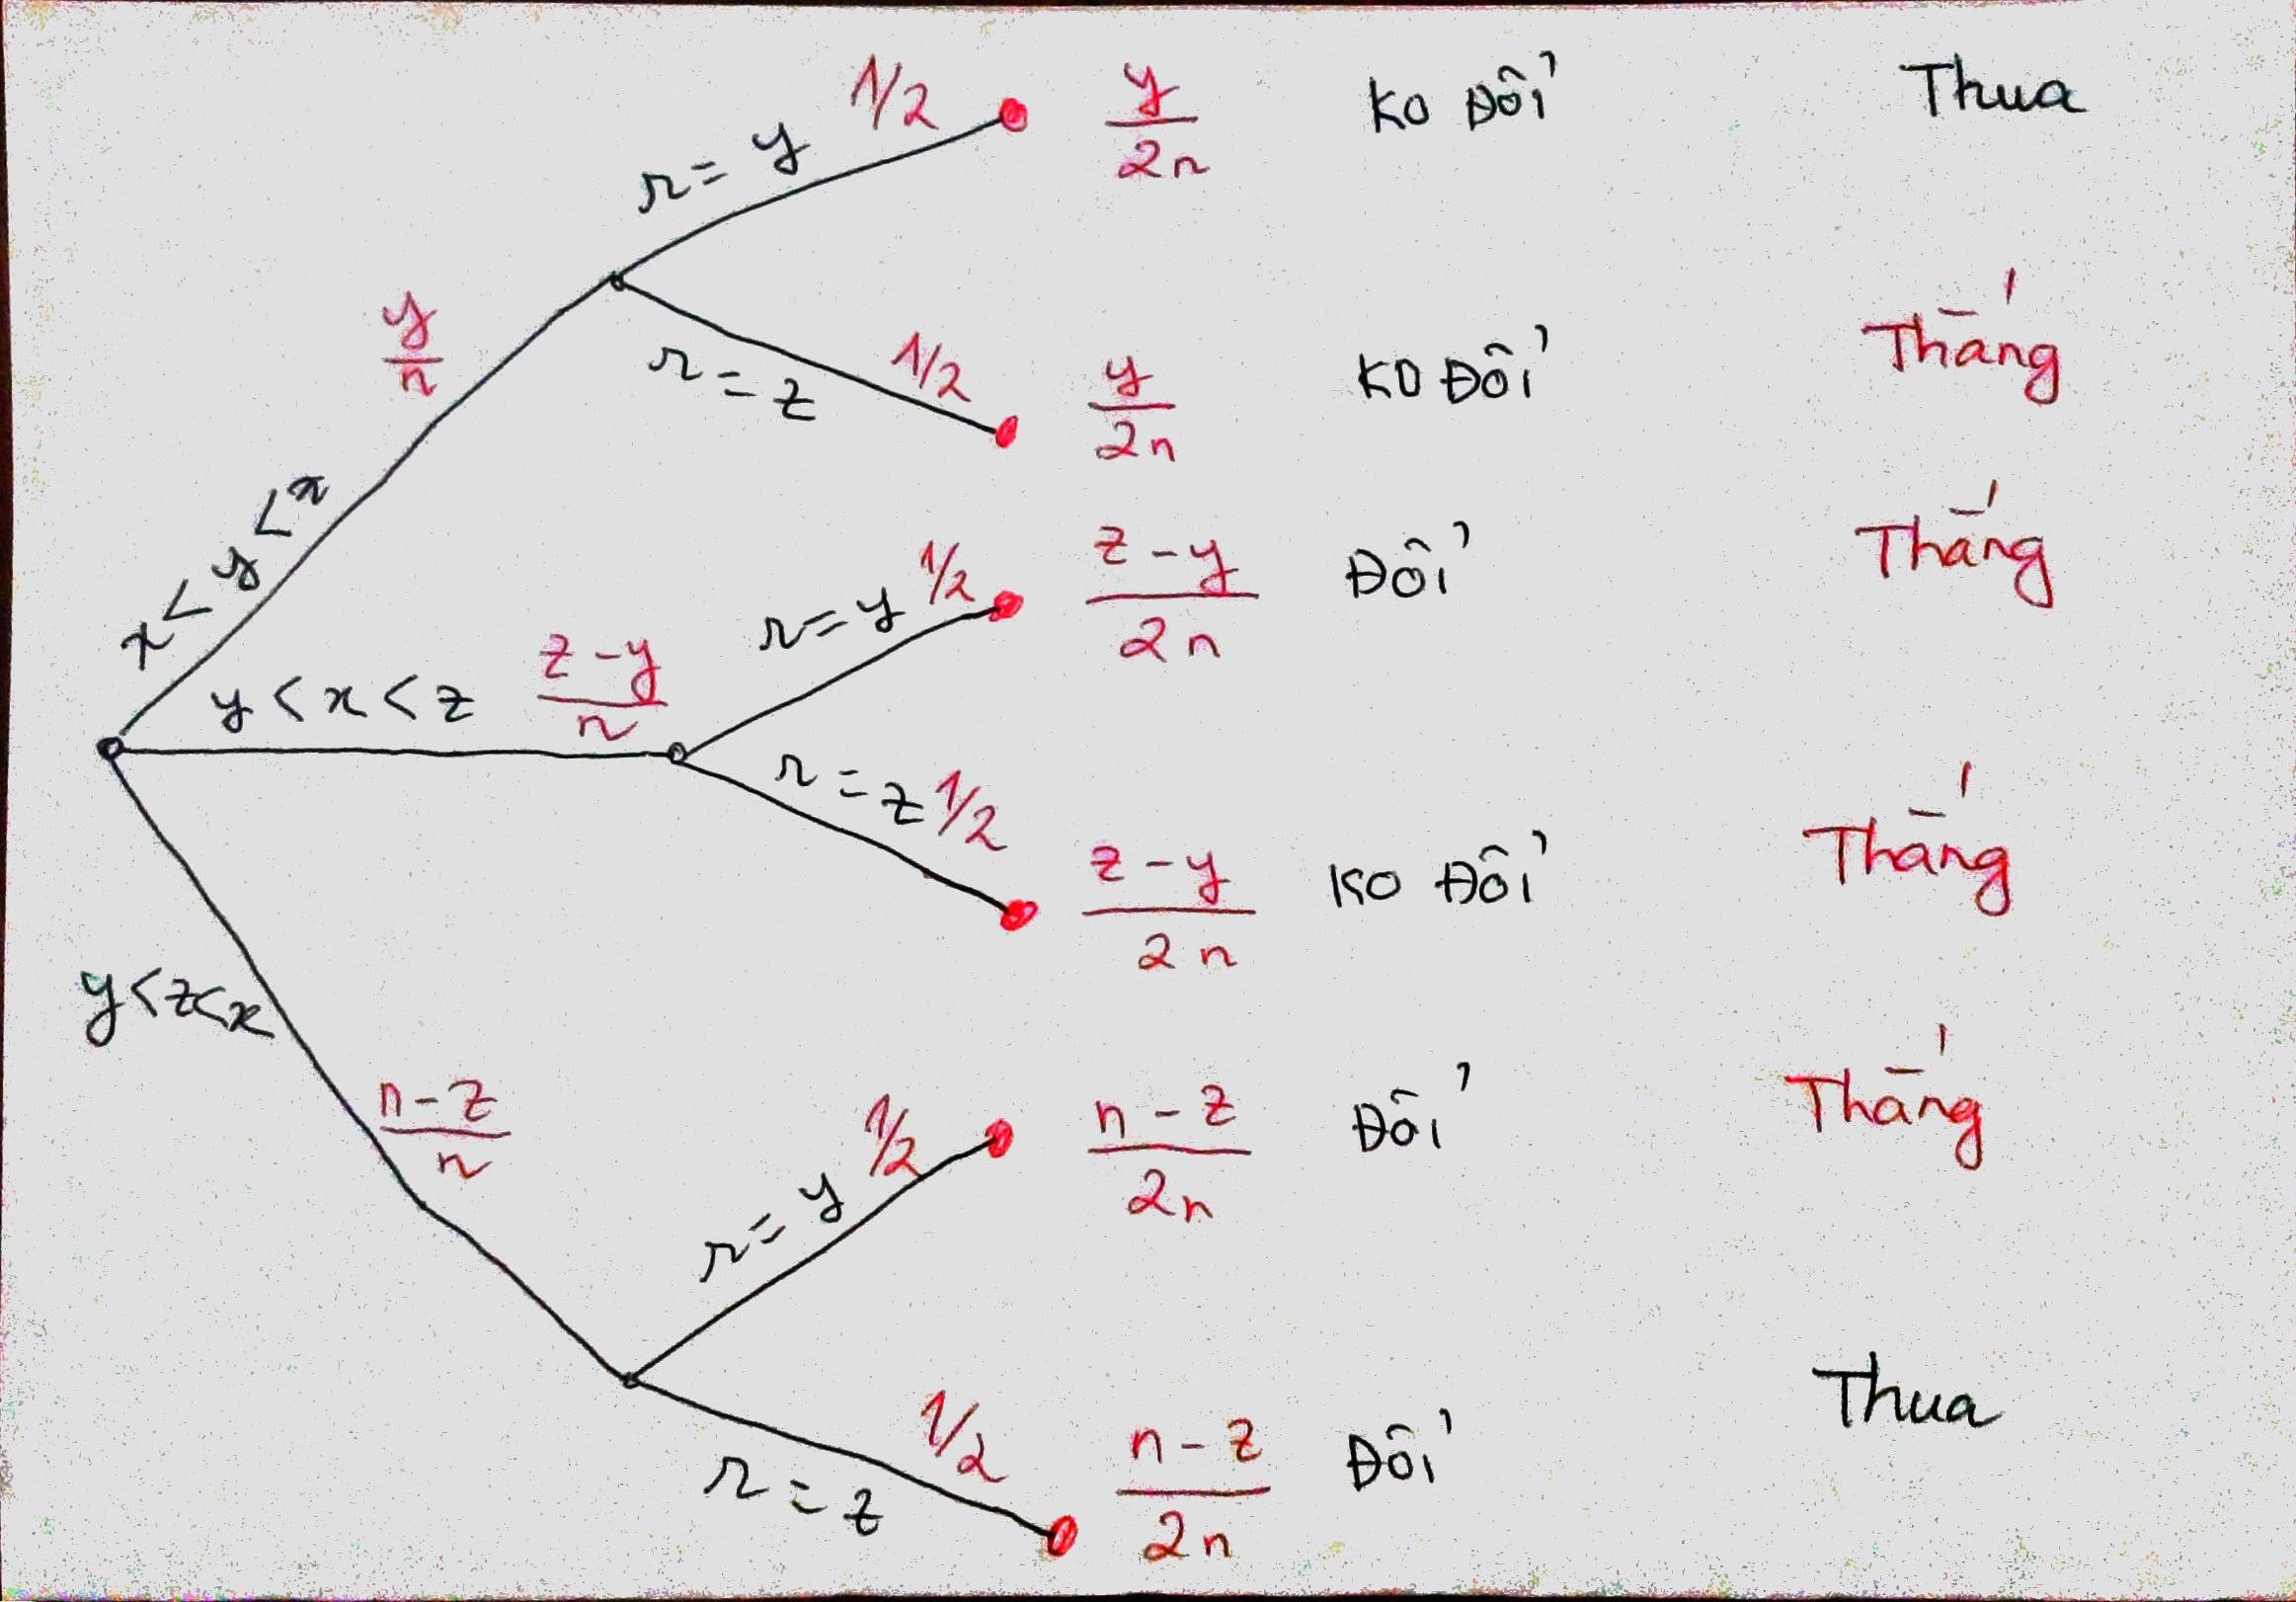 r = y 1/2 y/2n KO ĐỔI Thua
y/n
r = z 1/2 y/2n KO ĐỔI Thắng
x < y < x
r = y 1/2 z - y/2n ĐỔI Thắng
y < x < z z - y/n
r = z 1/2 z - y/2n KO ĐỔI Thắng
y < z < x
n - z/n
r = y 1/2 n - z/2n ĐỔI Thắng
r = z 1/2 n - z/2n ĐỔI Thua